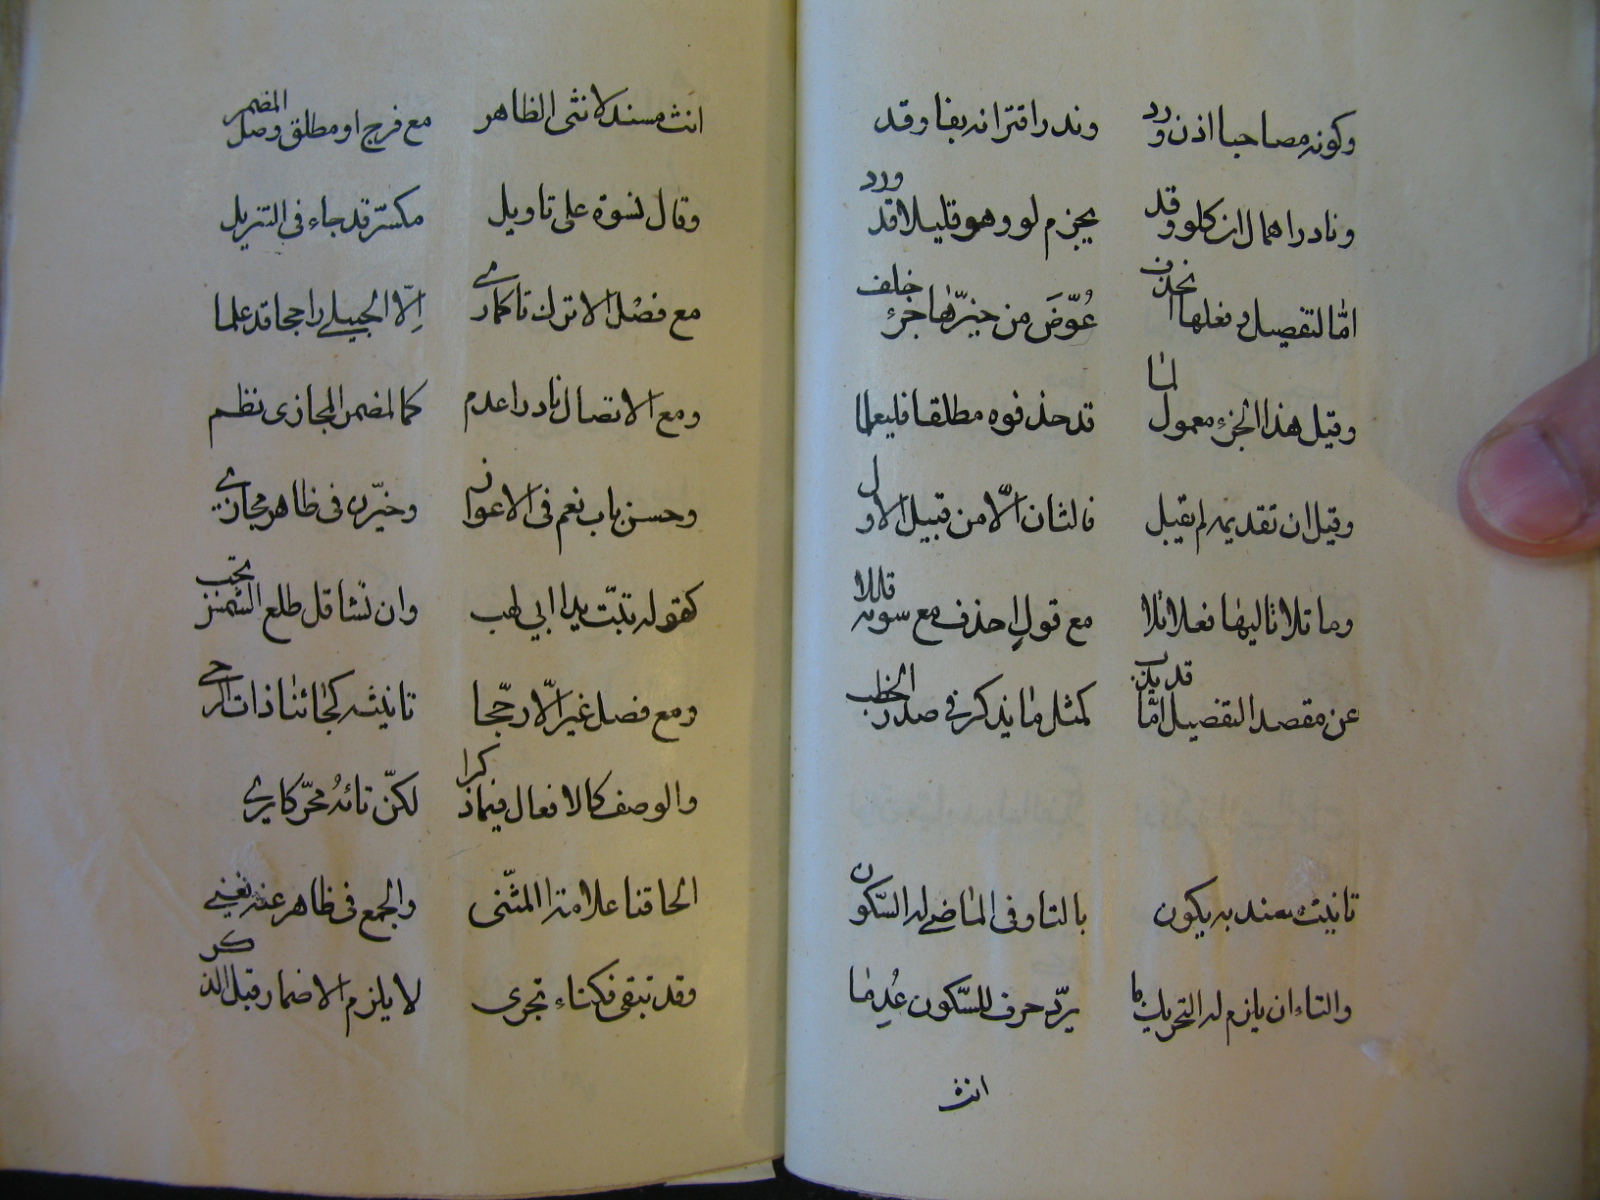 وكونه مصاحبا اذن ورد وندر اقترانه بفا وقد
ونادرا همال ان كلو وقد يجزم لو وهو قليلا قد ورد
امّا لتفصيل وفعلها انحذف عُوّضَ من خيّرها جزءٌ خلف
وقيل هذا الجزء معمول لما قد حذفوه مطلقا فليعلما
وقيل ان تقديمه لم يقبل فالثان الّا من قبيل الاول
وما تلا تاليها فعلا تلا مع قولٍ احذف مع سوىه قللا
عن مقصد التفصيل امّا قد يان كمثل ما يذكر في صدر الخطب
تانيث مسند به يكون بالتا وفى الماضي له السّكون
والتاء ان يلزم له التحريك ما يردّ حرف للسّكون عُدِما
انث
انث مسندا لانثى الظاهر مع فرج او مطلق وصل المضمر
وقال نسوة على تاويل مكسّر قد جاء فى التنزيل
مع فصل الا ترك تا كما رمي اِلّا الجبيلي راجحا قد علما
ومع الاتصال نادرا عدم كما لمضمن المجازى نظم
وحسن باب نعم فى الاعوانه وخيّرن فى ظاهر مجازي
كقوله تبّت يدا ابي لهب وان تشا قل طلع الشمس تجب
ومع فصل غير الّا رجّحا تانيثه كجائنا ذات الرحي
والوصف كالافعال فيما ذكرا لكنّ تائهُ محرّكا يرى
الحاقنا علامة المثنّى والجمع فى ظاهر عنه نغنيي
وقد تبقى فكتاء تجرى لا يلزم الاضمار قبل الذكر